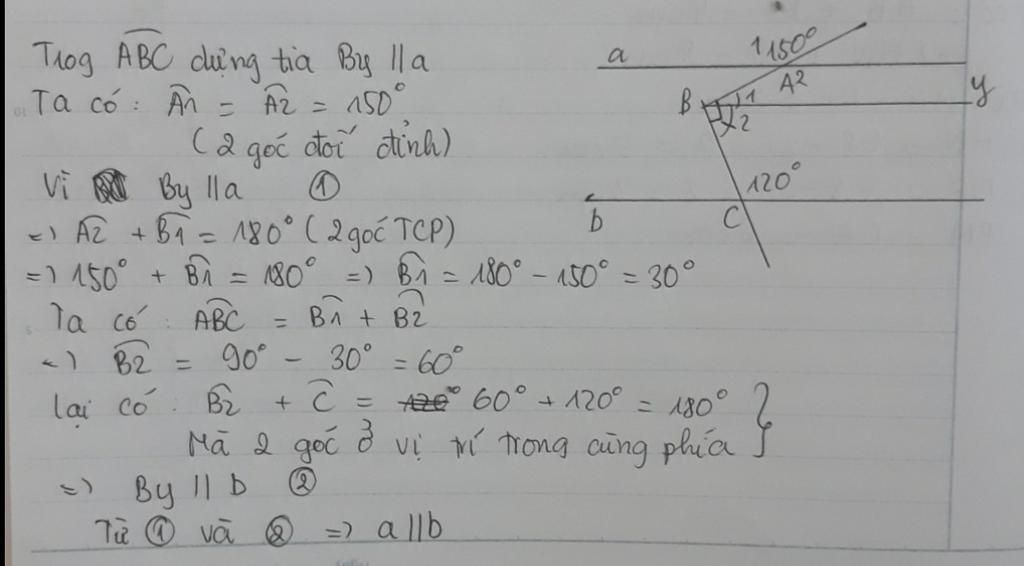 Trog ABC dựng tia By // a
Ta có: A1 = A2 = 150°
(2 góc đối đỉnh)
Vì By // a ①
=> A2 + B1 = 180° (2 góc TCP)
=> 150° + B1 = 180° => B1 = 180° - 150° = 30°
Ta có: ABC = B1 + B2
<=> B2 = 90° - 30° = 60°
Lại có: B2 + C = 60° + 120° = 180°
Mà 2 góc ở vị trí trong cùng phía
=> By // b ②
Từ ① và ② => a // b
a
1 150°
A 2
B 1
2
y
120°
b
C